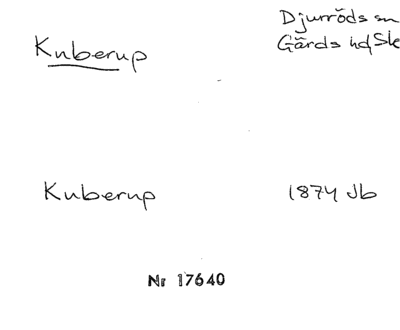 Kuberup
Djurröds sn
Gärds hd Sk
Kuberup
1874 Jb
Nr 17640